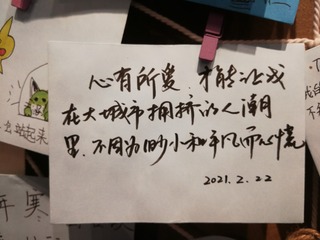 心有所爱,才能让我
在大城市拥挤的人潮
里.不因为渺小和平凡而心慌
2021.2.22
么站起来